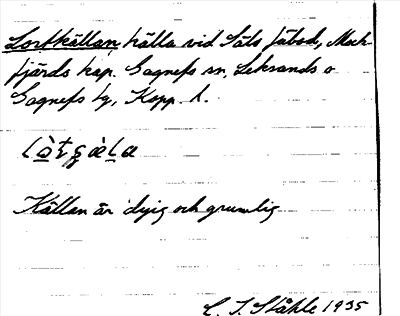 Lortkällan, källa vid Säls fäbod, Mock-
fjärds kap. Gagnefs sn, Leksands o
Gagnefs tg, Kopp. l.
Källan är dyig och grumlig
C. I. Ståhle 1935